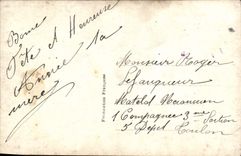 Bonne
Fête et Heureuse
Année ta
mère
Fabrication Française
Monsieur Roger
Lefauqueur
Matelot Mécanicien
1 Compagnie 3ème Section
5 Dépôt Toulon